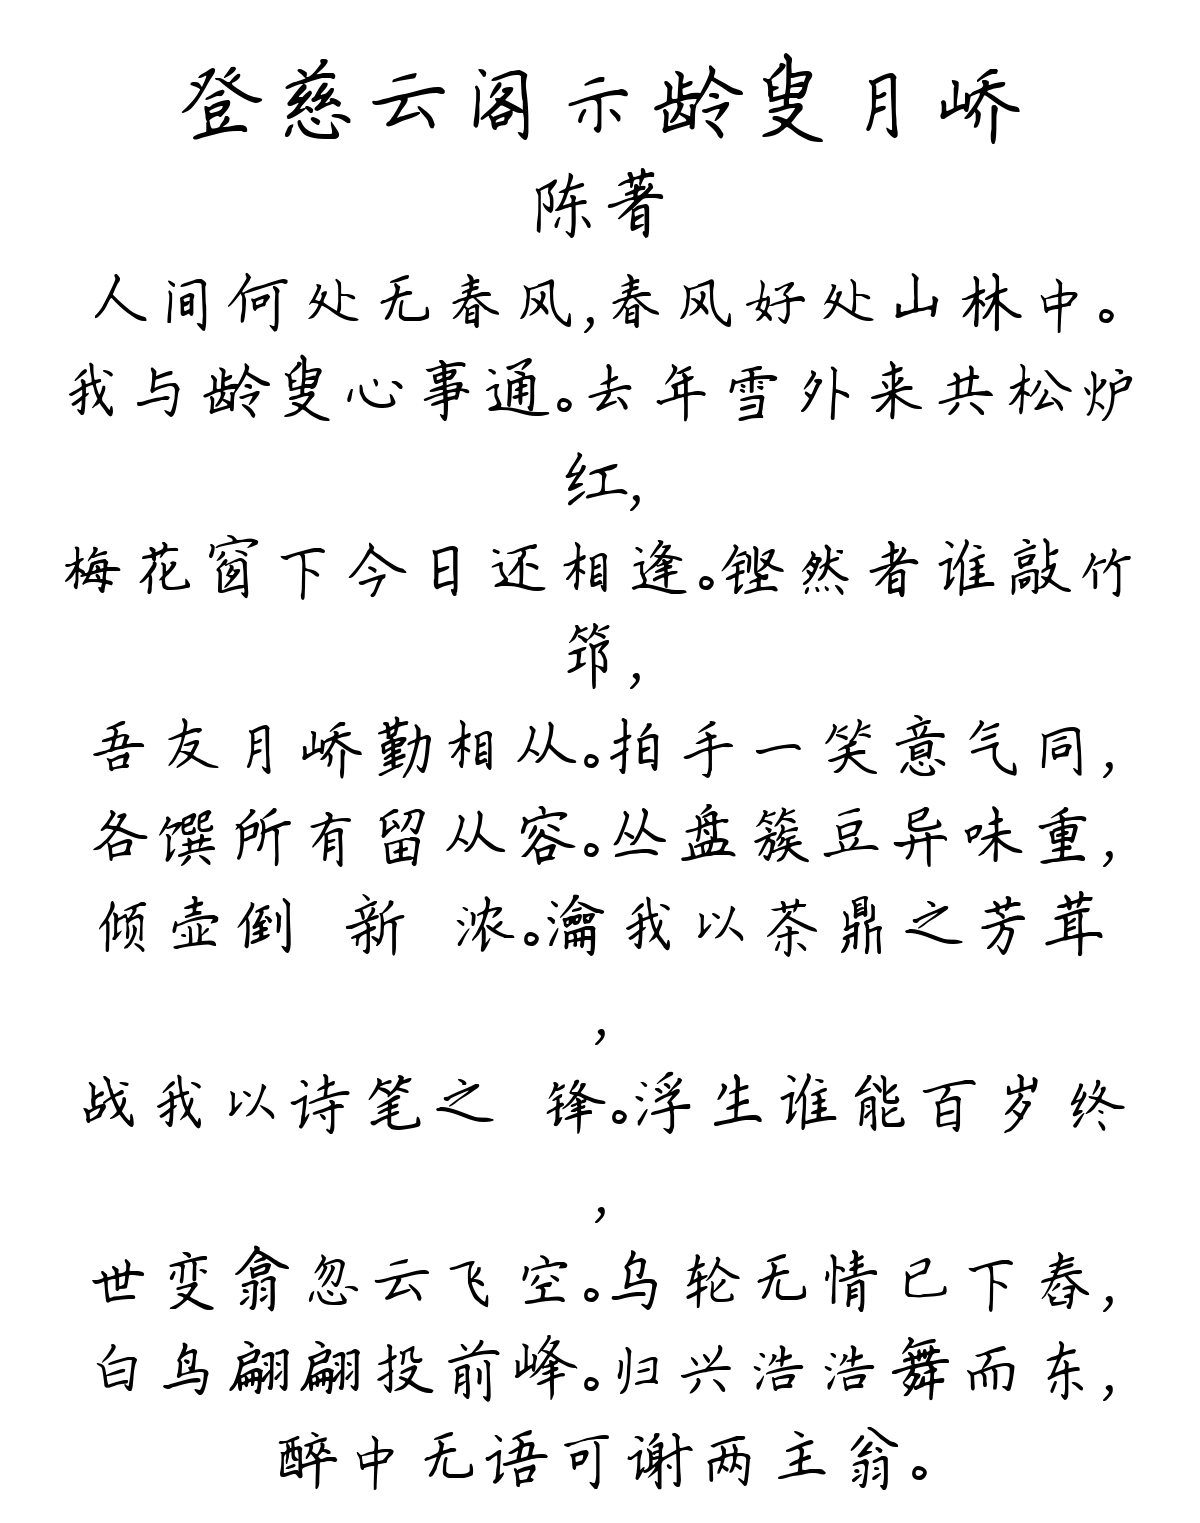 登慈云阁示龄叟月峤
陈著
人间何处无春风,春风好处山林中。
我与龄叟心事通。去年雪外来共松炉
红,
梅花窗下今日还相逢。铿然者谁敲竹
筇,
吾友月峤勤相从。拍手一笑意气同,
各馔所有留从容。丛盘簇豆异味重,
倾壶倒 新 浓。瀹我以茶鼎之芳茸
,
战我以诗笔之 锋。浮生谁能百岁终
,
世变翕忽云飞空。乌轮无情已下舂,
白鸟翩翩投前峰。归兴浩浩舞而东,
醉中无语可谢两主翁。